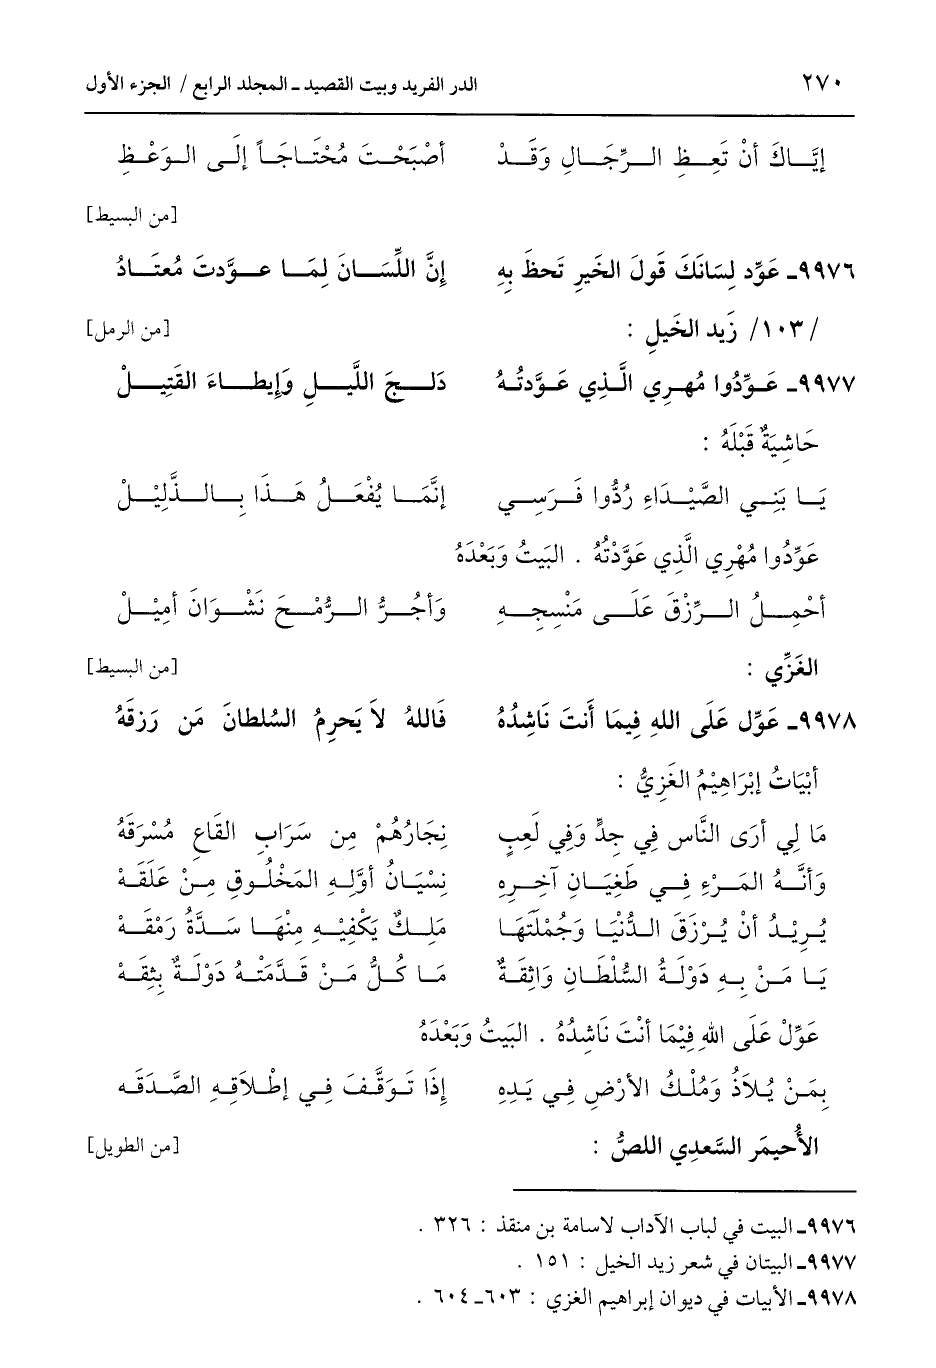 ٢٧٠ الدر الفريد وبيت القصيد ـ المجلد الرابع / الجزء الأول
إيَّاكَ أنْ تَعِظِ الرِّجَالِ وَقَدْ أصْبَحْتَ مُحْتَاجَاً إلَى الوَعْظِ
[من البسيط]
٩٩٧٦ـ عَوِّد لِسَانَكَ قَولَ الخَيرِ تَحظَ بِهِ إنَّ اللِّسَانَ لِمَا عوَّدتَ مُعتَادُ
/١٠٣/ زَيد الخَيلِ : [من الرمل]
٩٩٧٧ـ عَوِّدُوا مُهرِي الَّذِي عَوَّدتُهُ دَلجَ اللَّيلِ وَإيطاءَ القَتِيلْ
حَاشِيَةٌ قَبْلَهُ :
يَا بَنِي الصَّيْدَاءِ رُدُّوا فَرَسِي إنَّمَا يُفْعَلُ هَذَا بِالذَّلِيْلْ
عَوِّدُوا مُهْرِي الَّذِي عَوَّدْتُهُ . البَيتُ وَبَعْدَهُ
أحْمِلُ الرِّزْقَ عَلَى مَنْسِجِهِ وَأجُرُّ الرُّمْحَ نَشْوَانَ أمِيْلْ
الغَزِّي : [من البسيط]
٩٩٧٨ـ عَوِّل عَلَى اللهِ فِيمَا أَنتَ نَاشِدُهُ فَاللهُ لاَ يَحرِمُ السُلطانَ مَن رَزقَهُ
أبْيَاتُ إبْرَاهِيْمُ الغَزِيُّ :
مَا لِي أرَى النَّاس فِي جِدٍّ وَفِي لَعِبٍ نِجَارُهُمْ مِن سَرَابِ القَاعِ مُسْرَقَهُ
وَأنَّهُ المَرْءِ فِي طَغِيَانِ آخِرِهِ نِسْيَانُ أوَّلهِ المَخْلُوقِ مِنْ عَلَقَهْ
يُرِيْدُ أنْ يُرْزَقَ الدُّنْيَا وَجُمْلَتَهَا مَلِكٌ يَكْفِيْهِ مِنْهَا سَدَّةُ رَمْقَهْ
يَا مَنْ بِهِ دَوْلَةُ السُّلْطَانِ وَاثِقَةٌ مَا كُلُّ مَنْ قَدَّمَتْهُ دَوْلَةٌ بِثِقَهْ
عَوِّلْ عَلَى اللهِ فِيْمَا أنْتَ نَاشْدُهُ . البَيتُ وَبَعْدَهُ
بِمَنْ يُلاَذُ وَمُلْكُ الأرْضِ فِي يَدِهِ إذَا تَوَقَّفَ فِي إطْلاَقِهِ الصَّدَقَه
الأُحيمَر السَّعدِي اللصُّ : [من الطويل]
٩٩٧٦ـ البيت في لباب الآداب لاسامة بن منقذ : ٣٢٦ .
٩٩٧٧ـ البيتان في شعر زيد الخيل : ١٥١ .
٩٩٧٨ـ الأبيات في ديوان إبراهيم الغزي : ٦٠٣ـ ٦٠٤ .